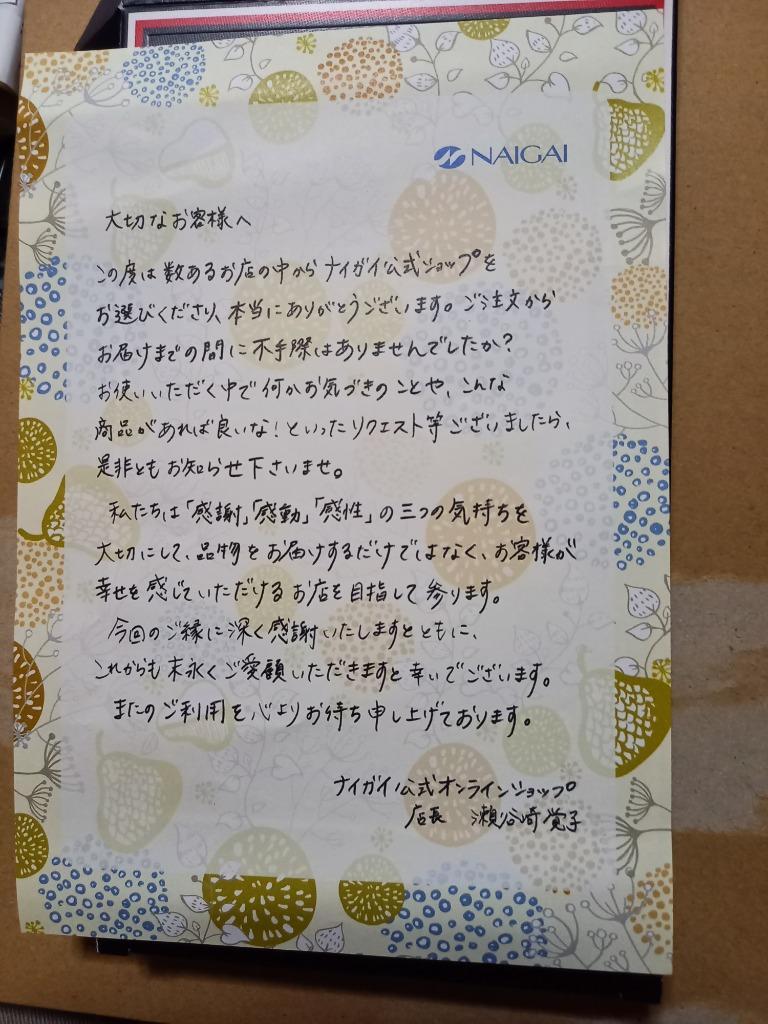 NAIGAI
大切なお客様へ
この度は数あるお店の中からナイガイ公式ショップを
お選びくださり、本当にありがとうございます。ご注文から
お届けまでの間に不手際はありませんでしたか?
お使いいただく中で何かお気づきのことや、こんな
商品があれば良いな!といったリクエスト等ございましたら、
是非ともお知らせ下さいませ。
私たちは「感謝」「感動」「感性」の三つの気持ちを
大切にして、品物をお届けするだけではなく、お客様が
幸せを感じていただけるお店を目指して参ります。
今回のご縁に深く感謝いたしますとともに、
これからも末永くご愛顧いただきますと幸いでございます。
またのご利用を心よりお待ち申し上げております。
ナイガイ公式オンラインショップ
店長 瀬谷崎 覚子